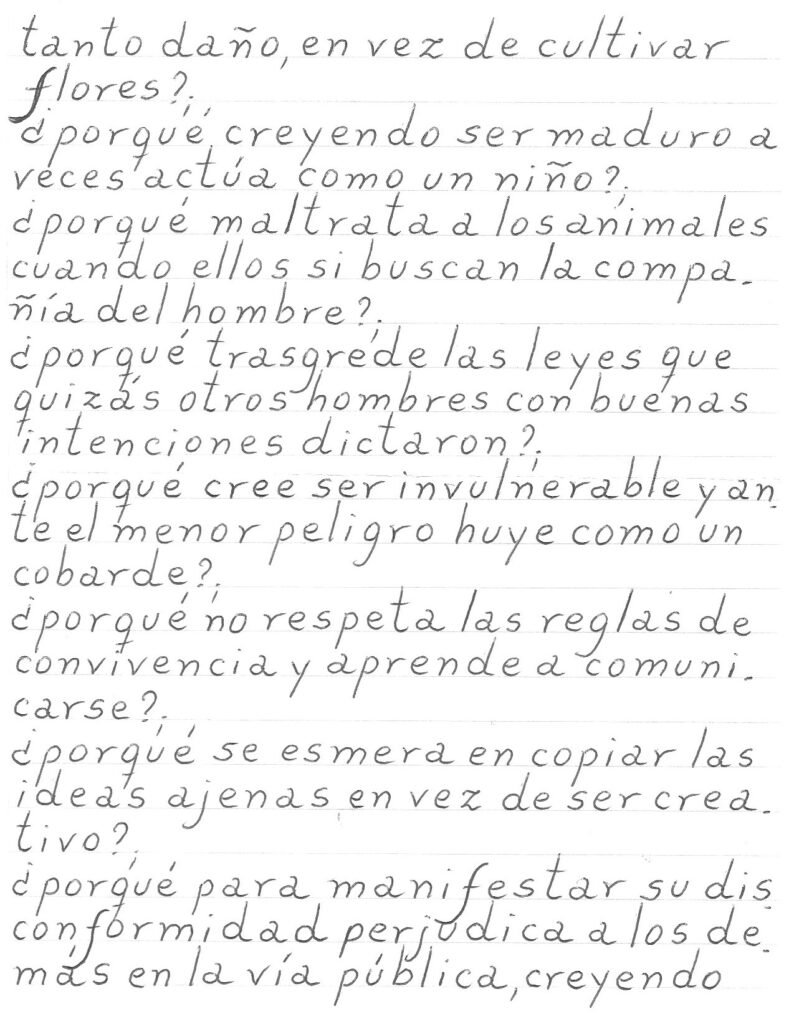 tanto daño, en vez de cultivar
flores?.
¿porqué, creyendo ser maduro a
veces actúa como un niño?.
¿porqué maltrata a los animales
cuando ellos si buscan la compa-
ñía del hombre?.
¿porqué trasgrede las leyes que
quizás otros hombres con buenas
intenciones dictaron?.
¿porqué cree ser invulnerable y an-
te el menor peligro huye como un
cobarde?.
¿porqué no respeta las reglas de
convivencia y aprende a comuni-
carse?.
¿porqué se esmera en copiar las
ideas ajenas, en vez de ser crea-
tivo?.
¿porqué para manifestar su dis-
conformidad perjudica a los de-
más en la vía pública, creyendo